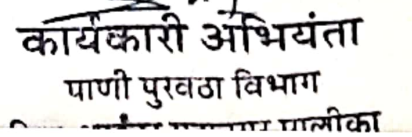 कार्यकारी अभियंता
पाणी पुरवठा विभाग
पालीका